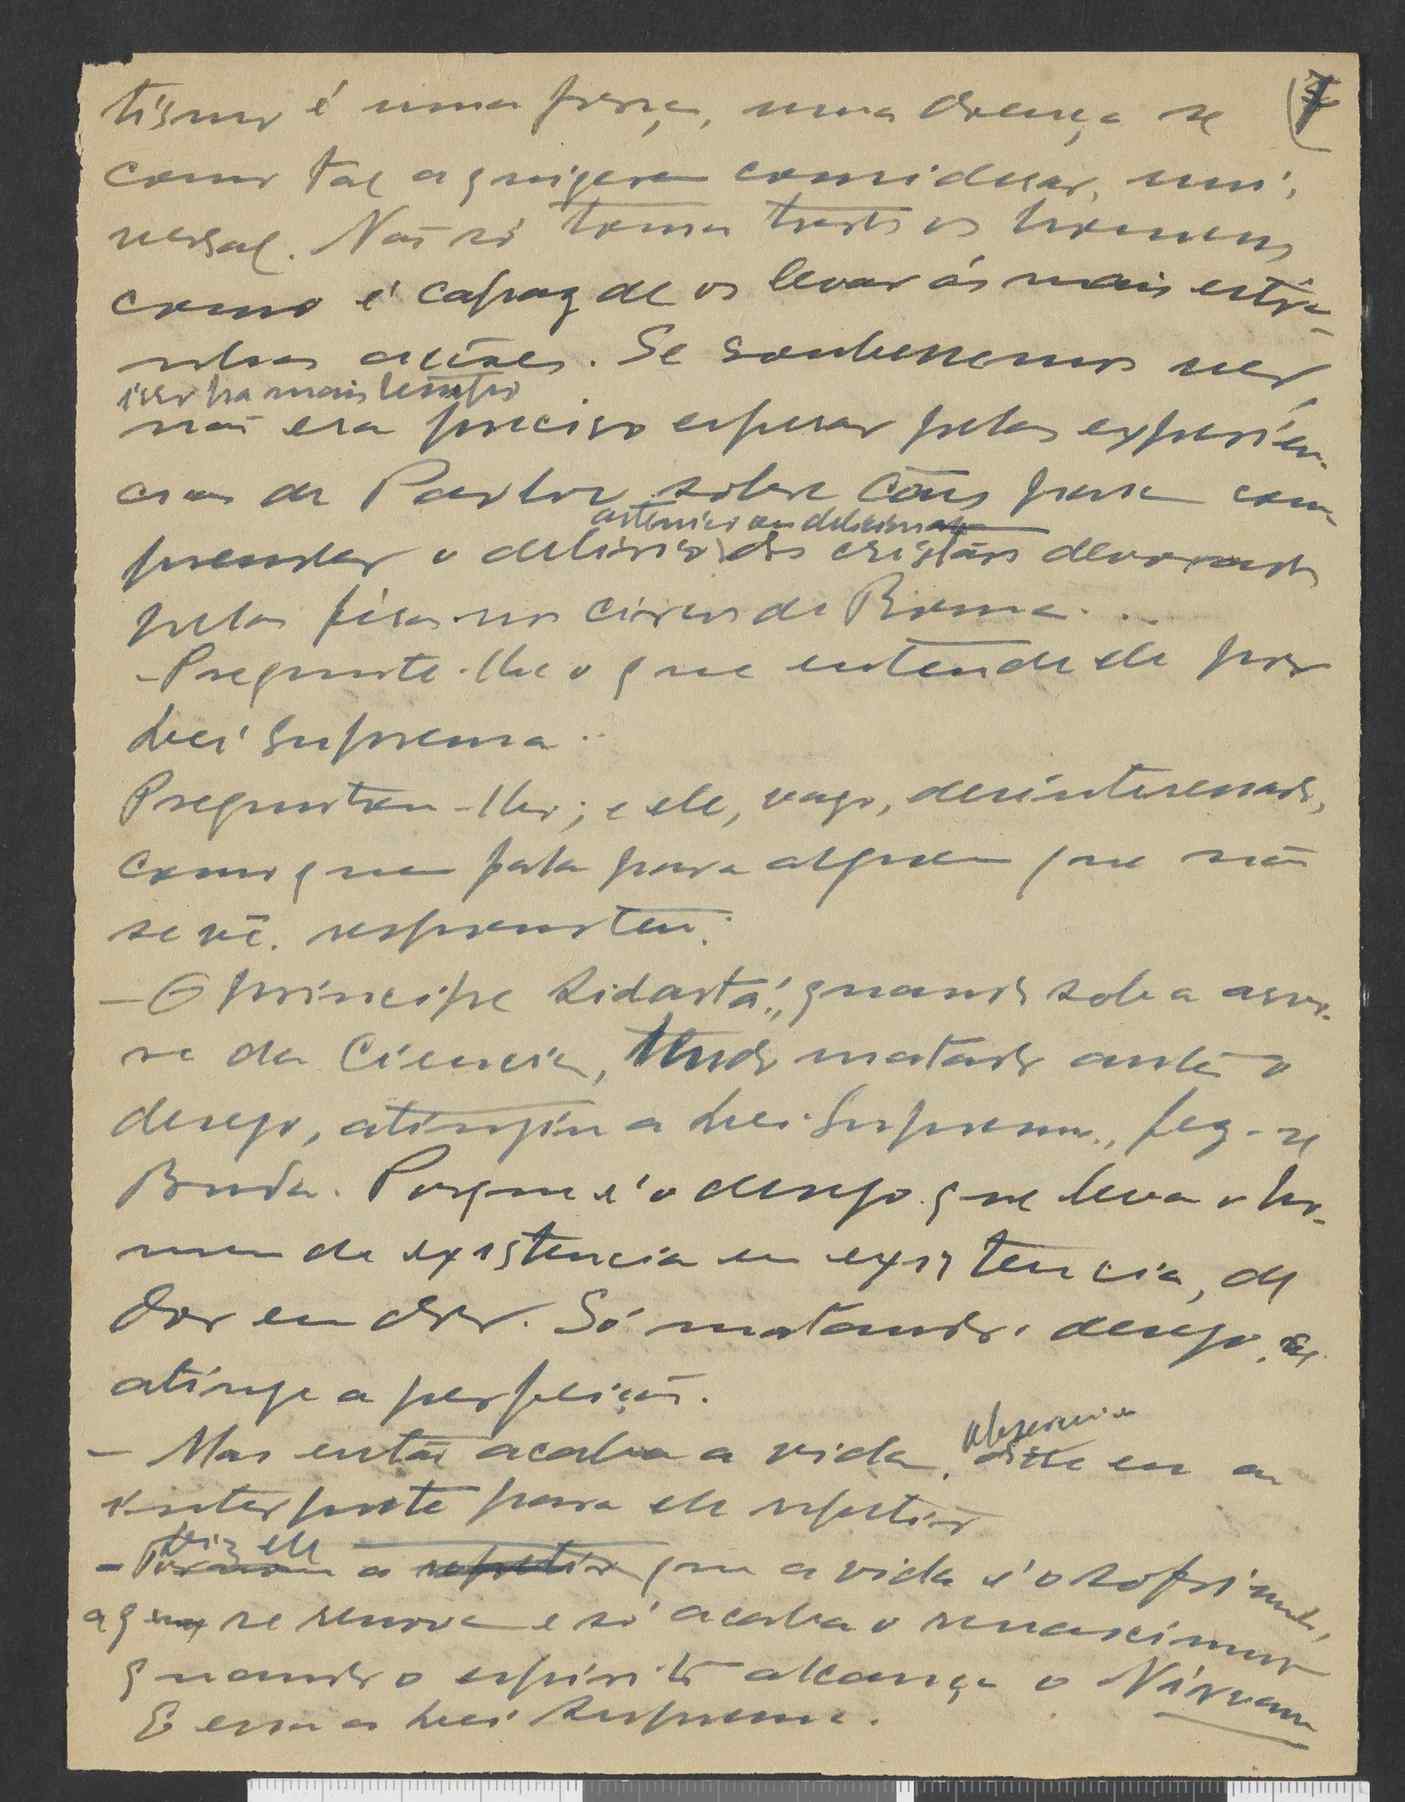 tismo é uma força, uma doença se
como tal a quizerem considerar, uni-
versal. Não só toma todos os homens
como é capaz de os levar ás mais estra-
nhas acções. Se soubessemos ver,
ver ha mais tempo
não era preciso esperar pelas experien-
cias de Pavlov sobre cães para com-
preender o delirio dos cristãos devorados
pelas féras nos circos de Roma...
- Pregunte-lhe o que entende ele por
Lei Suprema..
Preguntou-lho; e ele, vago, desinteressado,
como quem fala para alguem que não
se vê, respondeu:
- O principe Sidartá, quando sob a arvo-
re da Ciencia, tendo matado antes o
desejo, atingiu a Lei Suprema, fez-se
Buda. Porque é o desejo que leva o ho-
mem de existencia em existencia, de
dor em dor. Só matando o desejo se
atinge a perfeição.
- Mas então acaba a vida, disse eu ao
interprete para ele repetir
- Diz ele que a vida é o sofrimento
a que se renova e só acaba o renascimento
quando o espirito alcança o Nirvana
E essa a Lei Suprema.